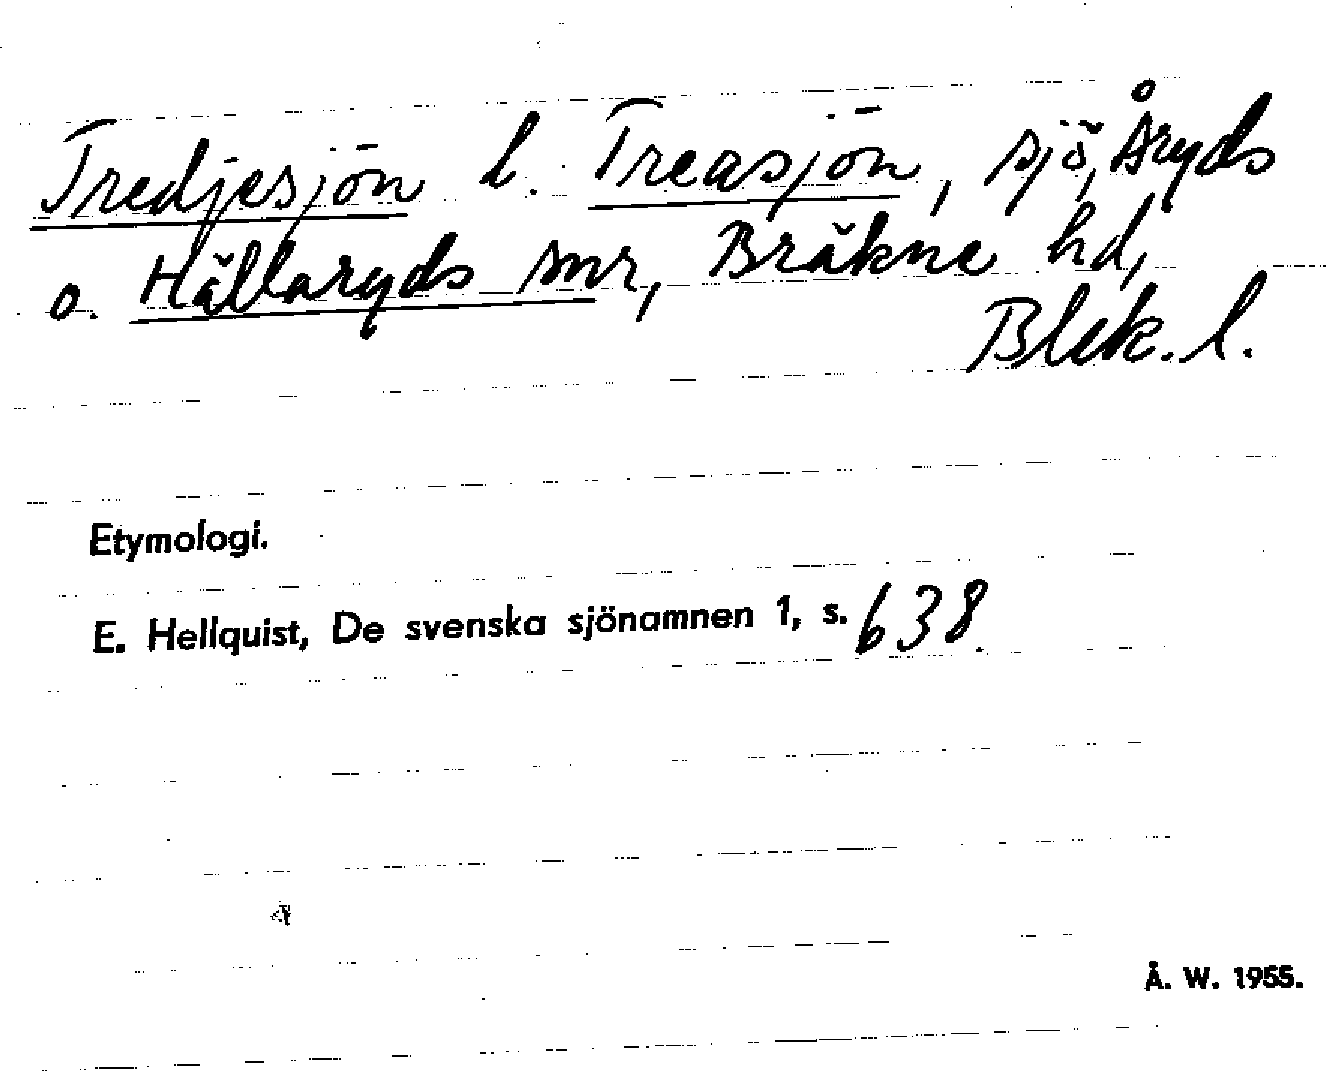 Tredjesjön l. Treasjön, sjö, Åryds
o. Hällaryds snr, Bräkne hd,
Blek. l.
Etymologi.
E. Hellquist, De svenska sjönamnen 1, s. 638.
Å. W. 1955.